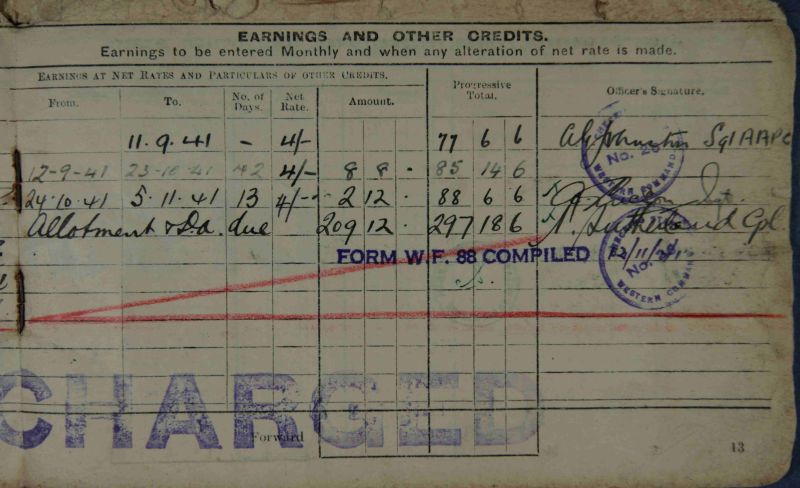 EARNINGS AND OTHER CREDITS.
Earnings to be entered Monthly and when any alteration of net rate is made.
EARNINGS AT NET RATES AND PARTICULARS OF OTHER CREDITS.
Progressive Total.
Officer's Signature.
From. To. No. of Days. Net Rate. Amount.
11.9.41 - 4/- 77 6 6 Sgt AAPC
12-9-41 23-10-41 42 4/- 8 8 - 85 14 6
24.10.41 5.11.41 13 4/- 2 12 - 88 6 6
Allotment & D.a. due 209 12 - 297 18 6 Sutherland Cpl
No. 2
WESTERN COMMAND
FORM W.F. 88 COMPILED
12/11/41
No.
WESTERN COMMAND
CHARGED
Forward
13